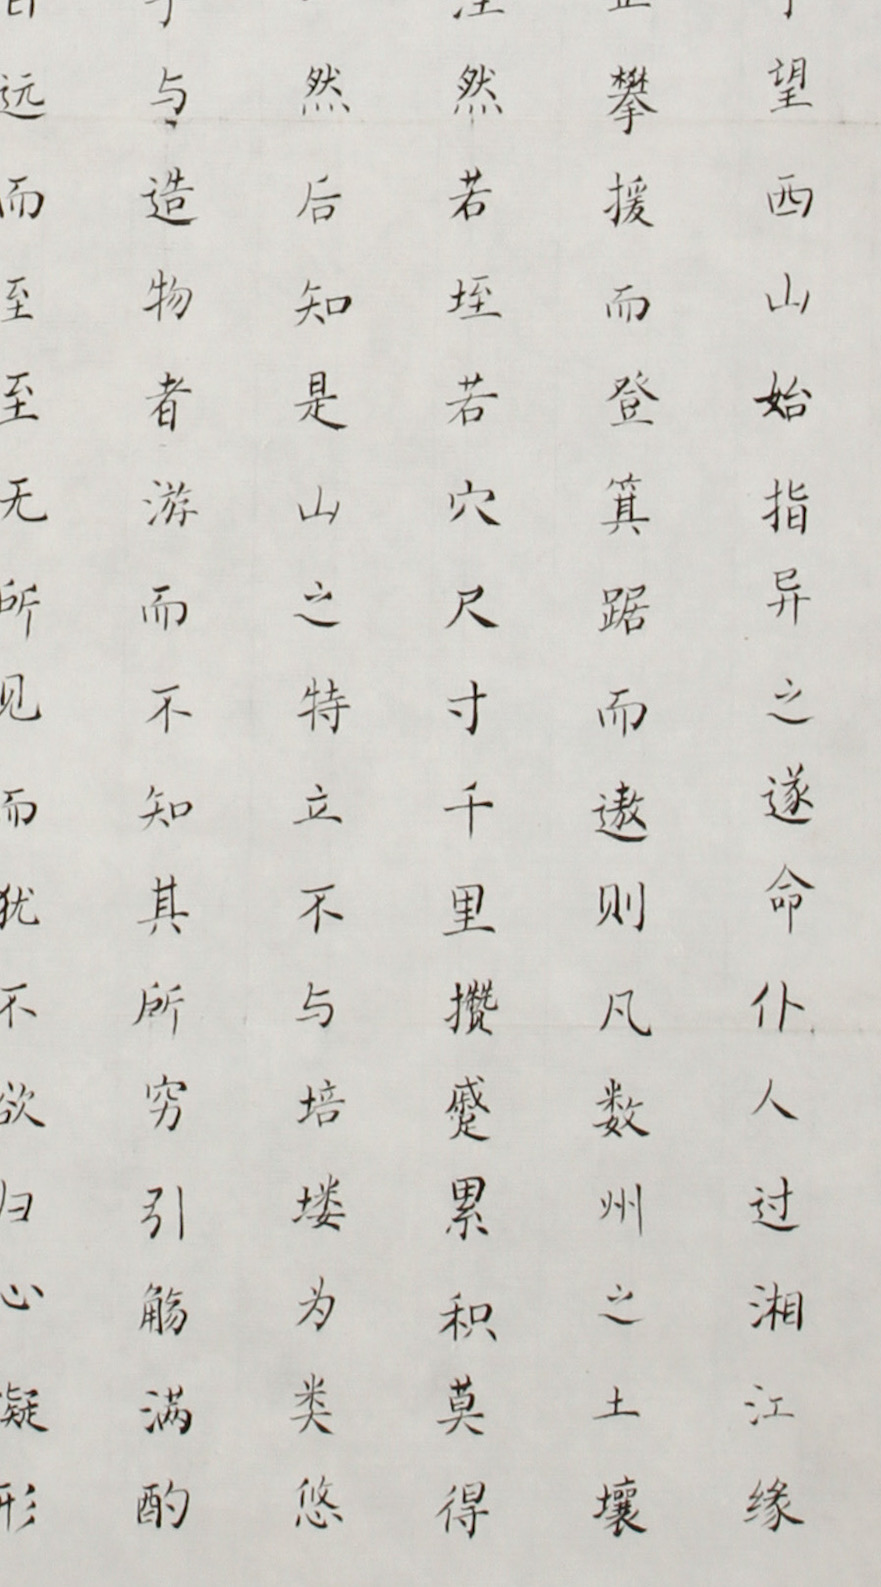 望西山始指异之遂命仆人过湘江缘
攀援而登箕踞而遨则凡数州之土壤
然若垤若穴尺寸千里攒蹙累积莫得
然后知是山之特立不与培塿为类悠
与造物者游而不知其所穷引觞满酌
远而至至无所见而犹不欲归心凝形